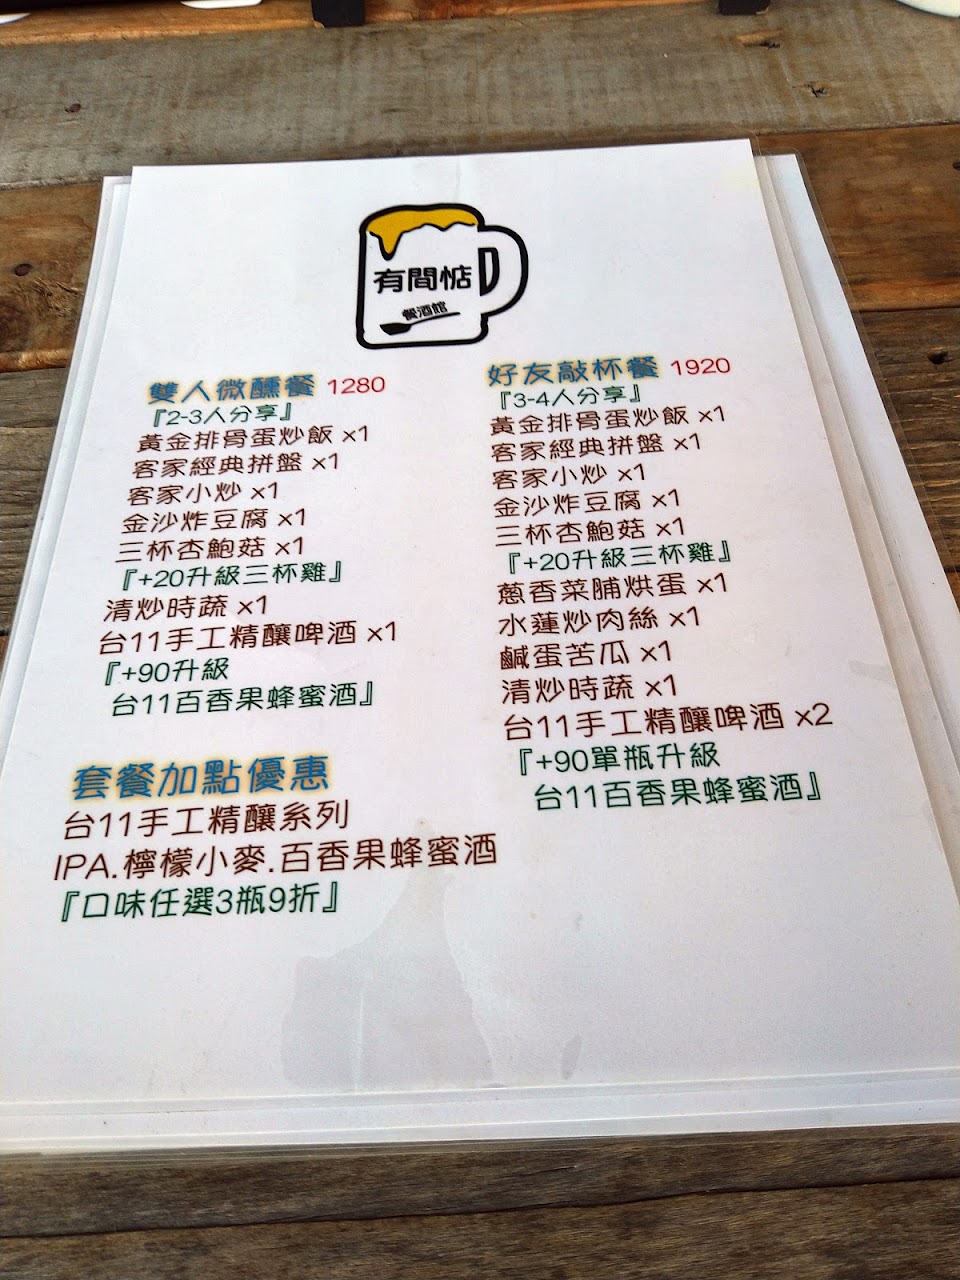 有間惦
餐酒館
雙人微醺餐 1280
『2-3人分享』
黃金排骨蛋炒飯 x1
客家經典拼盤 x1
客家小炒 x1
金沙炸豆腐 x1
三杯杏鮑菇 x1
『+20升級三杯雞』
清炒時蔬 x1
台11手工精釀啤酒 x1
『+90升級
台11百香果蜂蜜酒』
套餐加點優惠
台11手工精釀系列
IPA.檸檬小麥.百香果蜂蜜酒
『口味任選3瓶9折』
好友敲杯餐 1920
『3-4人分享』
黃金排骨蛋炒飯 x1
客家經典拼盤 x1
客家小炒 x1
金沙炸豆腐 x1
三杯杏鮑菇 x1
『+20升級三杯雞』
蔥香菜脯烘蛋 x1
水蓮炒肉絲 x1
鹹蛋苦瓜 x1
清炒時蔬 x1
台11手工精釀啤酒 x2
『+90單瓶升級
台11百香果蜂蜜酒』